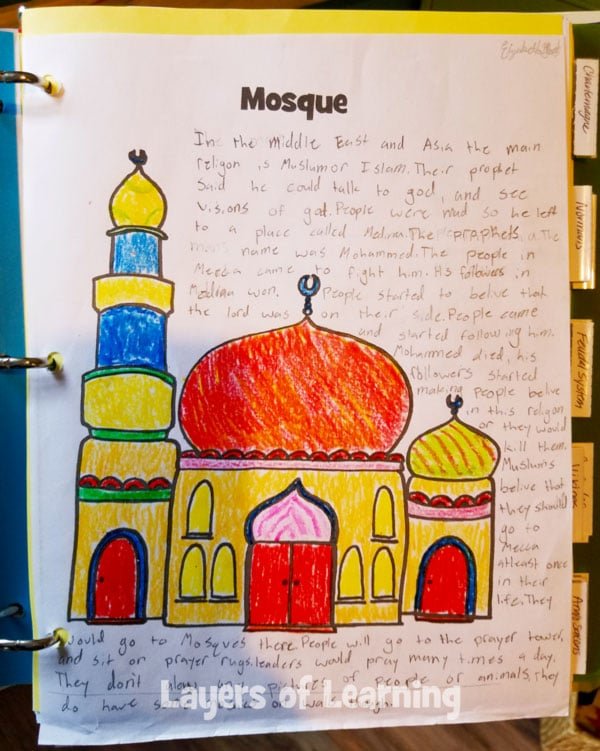 Mosque
In the middle East and Asia the main
religon is Muslum or Islam. Their prophet
said he could talk to god, and see
visions of god. People were mad so he left
to a place called Medina. The prophets
name was Mohammed. The people in
Mecca came to fight him. His followers in
Meddina won. People started to belive that
the lord was on their side. People came
and started following him.
Mohammed died, his
followers started
making people belive
in this religon
or they would
kill them.
Muslums
belive that
they should
go to
Mecca
atleast once
in their
life. They
would go to Mosques there. People will go to the prayer tower,
and sit on prayer rugs. leaders would pray many times a day.
They don't alow any pictures of people or animals. They
do have
Layers of Learning
Charlemagne
Normans
Feudal System
Vikings